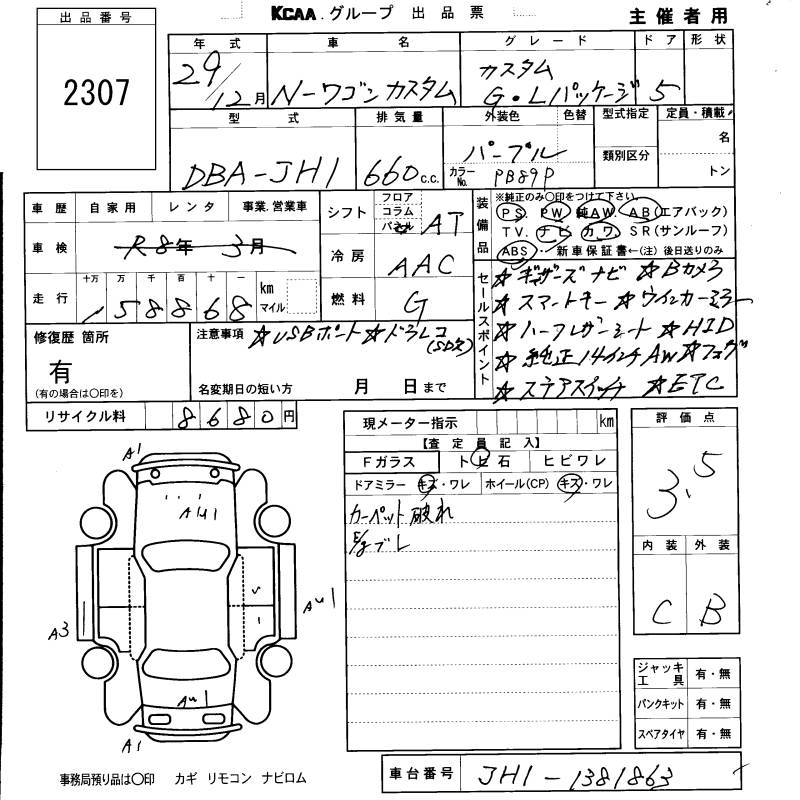 KCAA.グループ 出品票 主催者用
出品番号
2307
年式 車名 グレード ドア 形状
29/12月 N-ワゴンカスタム カスタム G・Lパッケージ 5
型式 排気量 外装色 色替 型式指定 定員・積載
DBA-JH1 660c.c. パープル 類別区分 名
カラーNo. PB89P トン
車歴 自家用 レンタ 事業.営業車
車検 R8年 3月
走行 十万 万 千 百 十 一 km マイル
158868
シフト フロア コラム パネル AT
冷房 AAC
燃料 G
装備品 ※純正のみ〇印をつけて下さい。
PS. PW 純AW. AB(エアバック)
TV. ナビ カワ SR(サンルーフ)
ABS. 新車保証書←(注)後日送りのみ
セールスポイント
☆ギャザーズナビ ☆Bカメラ
☆スマートキー ☆ウインカーミラー
☆ハーフレザーシート ☆HID
☆純正14インチAW ☆フォグ
☆ステアスイッチ ☆ETC
修復歴 箇所
有
(有の場合は〇印を)
注意事項 ☆USBポート ☆ドラレコ
(SD欠)
名変期日の短い方 月 日まで
リサイクル料 8680円
現メーター指示 km
【査定員記入】
Fガラス トビ石 ヒビワレ
ドアミラー キズ・ワレ ホイール(CP) キズ・ワレ
カーペット破れ
E/gブレ
評価点
3.5
内装 外装
C B
A1
AU1
A3
AU1
AU1
A1
ジャッキ工具 有・無
パンクキット 有・無
スペアタイヤ 有・無
事務局預り品は〇印 カギ リモコン ナビロム
車台番号 JH1-1381863